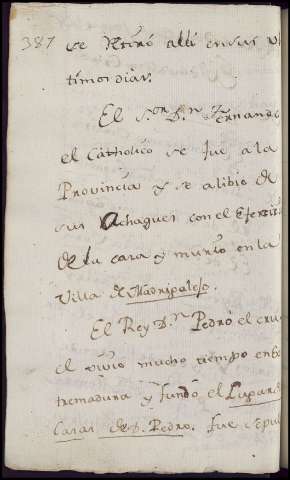 387 se Retiró alli en sus ul
timos dias.
El S.or D.n Fernando
el Catholico se fue a la
Provincia y se alibio de
sus Achaques con el Exerci
de la caza y murio en la
Villa de Madrigalejo.
El Rey D.n Pedro el crue
el vivio mucho tiempo en Ex
tremadura y fundó el Lugar de
Casas de D. Pedro. fue sepul